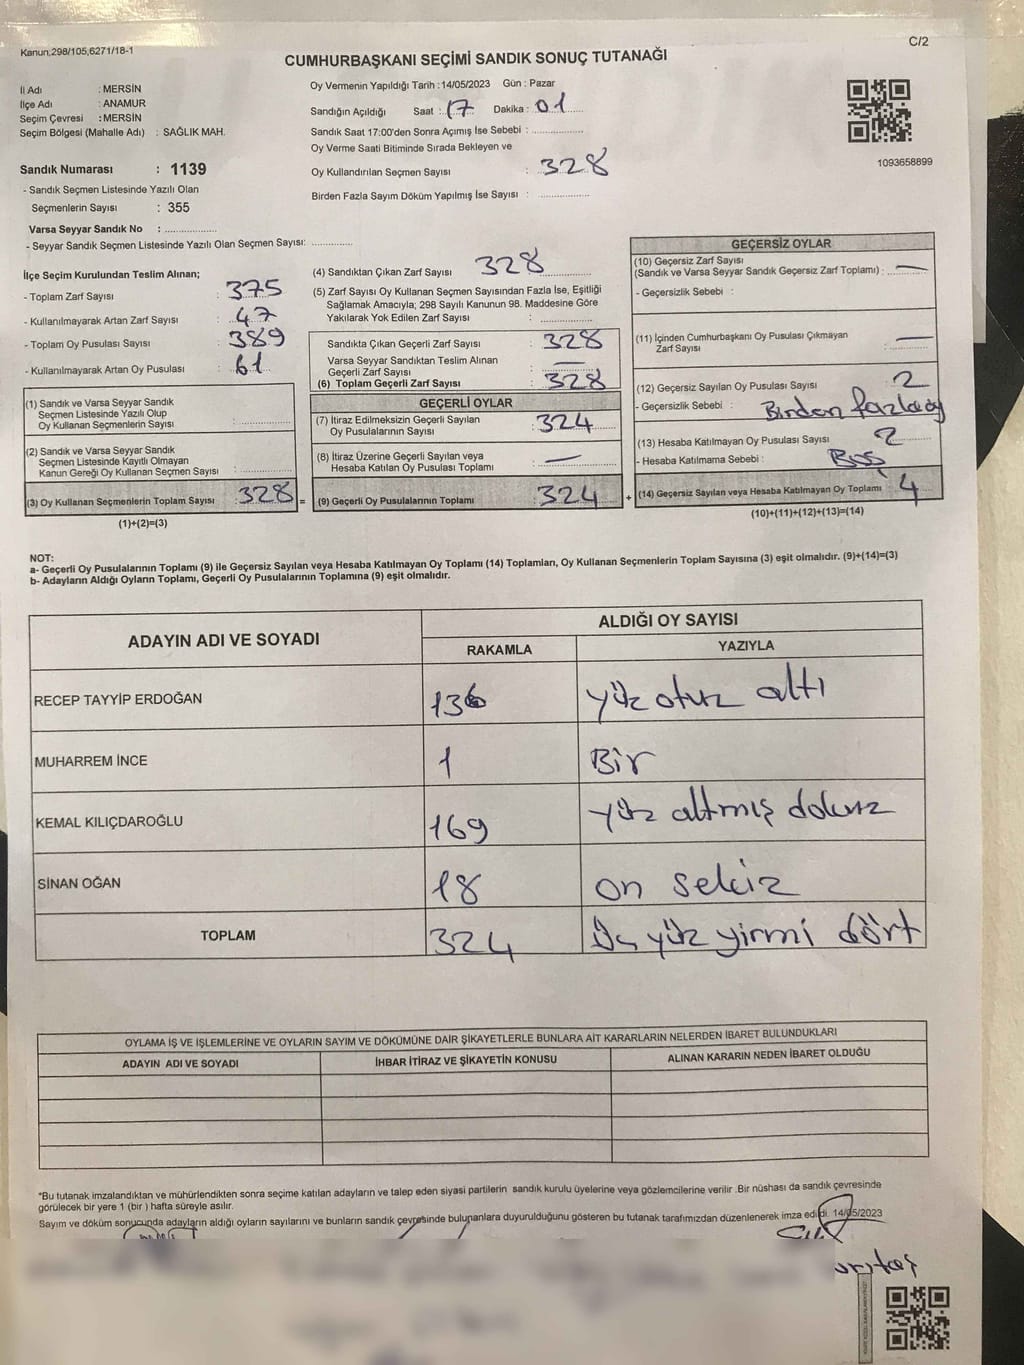 Kanun,298/105,6271/18-1
C/2
CUMHURBAŞKANI SEÇİMİ SANDIK SONUÇ TUTANAĞI
İl Adı : MERSİN
İlçe Adı : ANAMUR
Seçim Çevresi : MERSİN
Seçim Bölgesi (Mahalle Adı) : SAĞLIK MAH.
Sandık Numarası : 1139
- Sandık Seçmen Listesinde Yazılı Olan
Seçmenlerin Sayısı : 355
Varsa Seyyar Sandık No : ................
- Seyyar Sandık Seçmen Listesinde Yazılı Olan Seçmen Sayısı: .............
Oy Vermenin Yapıldığı Tarih :14/05/2023 Gün : Pazar
Sandığın Açıldığı Saat : 17 Dakika : 01
Sandık Saat 17:00'den Sonra Açımış İse Sebebi : ..................
Oy Verme Saati Bitiminde Sırada Bekleyen ve
Oy Kullandırılan Seçmen Sayısı : 328
Birden Fazla Sayım Döküm Yapılmış İse Sayısı : ..................
1093658899
İlçe Seçim Kurulundan Teslim Alınan;
- Toplam Zarf Sayısı : 375
- Kullanılmayarak Artan Zarf Sayısı : 47
- Toplam Oy Pusulası Sayısı : 389
- Kullanılmayarak Artan Oy Pusulası : 61
(1) Sandık ve Varsa Seyyar Sandık
Seçmen Listesinde Yazılı Olup
Oy Kullanan Seçmenlerin Sayısı :
(2) Sandık ve Varsa Seyyar Sandık
Seçmen Listesinde Kayıtlı Olmayan
Kanun Gereği Oy Kullanan Seçmen Sayısı :
(3) Oy Kullanan Seçmenlerin Toplam Sayısı : 328 =
(1)+(2)=(3)
(4) Sandıktan Çıkan Zarf Sayısı 328
(5) Zarf Sayısı Oy Kullanan Seçmen Sayısından Fazla İse, Eşitliği
Sağlamak Amacıyla; 298 Sayılı Kanunun 98. Maddesine Göre
Yakılarak Yok Edilen Zarf Sayısı :
Sandıkta Çıkan Geçerli Zarf Sayısı : 328
Varsa Seyyar Sandıktan Teslim Alınan
Geçerli Zarf Sayısı : —
(6) Toplam Geçerli Zarf Sayısı : 328
GEÇERLİ OYLAR
(7) İtiraz Edilmeksizin Geçerli Sayılan
Oy Pusulalarının Sayısı : 324
(8) İtiraz Üzerine Geçerli Sayılan veya
Hesaba Katılan Oy Pusulası Toplamı : —
(9) Geçerli Oy Pusulalarının Toplamı : 324 +
GEÇERSİZ OYLAR
(10) Geçersiz Zarf Sayısı
(Sandık ve Varsa Seyyar Sandık Geçersiz Zarf Toplamı) : —
- Geçersizlik Sebebi :
(11) İçinden Cumhurbaşkanı Oy Pusulası Çıkmayan
Zarf Sayısı : —
(12) Geçersiz Sayılan Oy Pusulası Sayısı : 2
- Geçersizlik Sebebi : Birden fazla oy
(13) Hesaba Katılmayan Oy Pusulası Sayısı : 2
- Hesaba Katılmama Sebebi : Boş
(14) Geçersiz Sayılan veya Hesaba Katılmayan Oy Toplamı : 4
(10)+(11)+(12)+(13)=(14)
NOT:
a- Geçerli Oy Pusulalarının Toplamı (9) ile Geçersiz Sayılan veya Hesaba Katılmayan Oy Toplamı (14) Toplamları, Oy Kullanan Seçmenlerin Toplam Sayısına (3) eşit olmalıdır. (9)+(14)=(3)
b- Adayların Aldığı Oyların Toplamı, Geçerli Oy Pusulalarının Toplamına (9) eşit olmalıdır.
ADAYIN ADI VE SOYADI ALDIĞI OY SAYISI
RAKAMLA YAZIYLA
RECEP TAYYİP ERDOĞAN 136 yüz otuz altı
MUHARREM İNCE 1 Bir
KEMAL KILIÇDAROĞLU 169 yüz altmış dokuz
SİNAN OĞAN 18 on sekiz
TOPLAM 324 üç yüz yirmi dört
OYLAMA İŞ VE İŞLEMLERİNE VE OYLARIN SAYIM VE DÖKÜMÜNE DAİR ŞİKAYETLERLE BUNLARA AİT KARARLARIN NELERDEN İBARET BULUNDUKLARI
ADAYIN ADI VE SOYADI İHBAR İTİRAZ VE ŞİKAYETİN KONUSU ALINAN KARARIN NEDEN İBARET OLDUĞU
*Bu tutanak imzalandıktan ve mühürlendikten sonra seçime katılan adayların ve talep eden siyasi partilerin sandık kurulu üyelerine veya gözlemcilerine verilir .Bir nüshası da sandık çevresinde
görülecek bir yere 1 (bir ) hafta süreyle asılır.
Sayım ve döküm sonucunda adayların aldığı oyların sayılarını ve bunların sandık çevresinde bulunanlara duyurulduğunu gösteren bu tutanak tarafımızdan düzenlenerek imza edildi. 14/05/2023